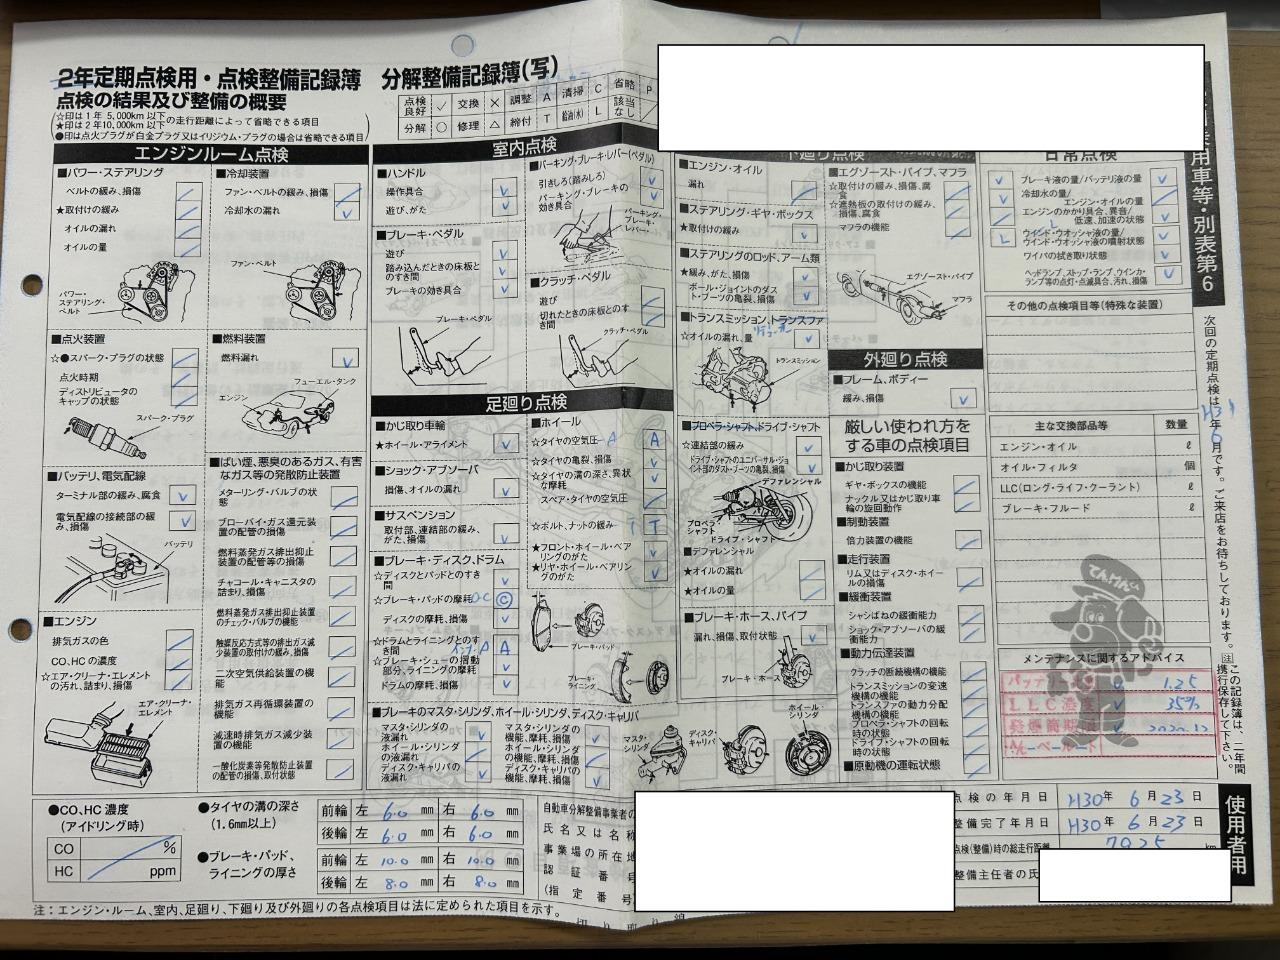 2年定期点検用・点検整備記録簿
分解整備記録簿(写)
点検の結果及び整備の概要
☆印は1年 5,000km以下
★印は2年10,000km以下
の走行距離によって省略できる項目
●印は点火プラグが白金プラグ又はイリジウム・プラグの場合は省略できる項目
点検良好 ✓ 交換 × 調整 A 清掃 C 省略 P
分解 ○ 修理 △ 締付 T 給油(水) L 該当なし /
エンジンルーム点検
■パワー・ステアリング
ベルトの緩み、損傷
★取付けの緩み
オイルの漏れ
オイルの量
パワー・ステアリング・ベルト
■冷却装置
ファン・ベルトの緩み、損傷
冷却水の漏れ
ファン・ベルト
■点火装置
☆●スパーク・プラグの状態
点火時期
ディストリビュータのキャップの状態
スパーク・プラグ
■燃料装置
燃料漏れ
フューエル・タンク
エンジン
■バッテリ、電気配線
ターミナル部の緩み、腐食
電気配線の接続部の緩み、損傷
バッテリ
■ばい煙、悪臭のあるガス、有害なガス等の発散防止装置
メターリング・バルブの状態
ブローバイ・ガス還元装置の配管の損傷
燃料蒸発ガス排出抑止装置の配管等の損傷
チャコール・キャニスタの詰まり、損傷
燃料蒸発ガス排出抑止装置のチェック・バルブの機能
触媒反応方式等の排出ガス減少装置の取付けの緩み、損傷
二次空気供給装置の機能
排気ガス再循環装置の機能
減速時排気ガス減少装置の機能
一酸化炭素等発散防止装置の配管の損傷、取付状態
■エンジン
排気ガスの色
CO、HCの濃度
☆エア・クリーナ・エレメントの汚れ、詰まり、損傷
エア・クリーナ・エレメント
室内点検
■ハンドル
操作具合
遊び、がた
■ブレーキ・ペダル
遊び
踏み込んだときの床板とのすき間
ブレーキの効き具合
ブレーキ・ペダル
■パーキング・ブレーキ・レバー(ペダル)
引きしろ(踏みしろ)
パーキング・ブレーキの効き具合
パーキング・ブレーキ・レバー
■クラッチ・ペダル
遊び
切れたときの床板とのすき間
クラッチ・ペダル
足廻り点検
■かじ取り車輪
★ホイール・アライメント
■ショック・アブソーバ
損傷、オイルの漏れ
■サスペンション
取付部、連結部の緩み、がた、損傷
■ブレーキ・ディスク、ドラム
☆ディスクとパッドとのすき間
☆ブレーキ・パッドの摩耗
ディスクの摩耗、損傷
☆ドラムとライニングとのすき間
☆ブレーキ・シューの摺動部分、ライニングの摩耗
ドラムの摩耗、損傷
■ホイール
☆タイヤの空気圧 A
☆タイヤの亀裂、損傷
☆タイヤの溝の深さ、異状な摩耗
スペア・タイヤの空気圧
☆ボルト、ナットの緩み T
★フロント・ホイール・ベアリングのがた
★リヤ・ホイール・ベアリングのがた
ブレーキ・パッド
ブレーキ・ライニング
■ブレーキのマスタ・シリンダ、ホイール・シリンダ、ディスク・キャリパ
マスタ・シリンダの液漏れ
ホイール・シリンダの液漏れ
ディスク・キャリパの液漏れ
マスタ・シリンダの機能、摩耗、損傷
ホイール・シリンダの機能、摩耗、損傷
ディスク・キャリパの機能、摩耗、損傷
マスタ・シリンダ
ディスク・キャリパ
ホイール・シリンダ
下廻り点検
■エンジン・オイル
漏れ
■ステアリング・ギヤ・ボックス
★取付けの緩み
■ステアリングのロッド、アーム類
★緩み、がた、損傷
ボール・ジョイントのダスト・ブーツの亀裂、損傷
■トランスミッション、トランスファ
☆オイルの漏れ、量
トランスミッション
■プロペラ・シャフト、ドライブ・シャフト
☆連結部の緩み
ドライブ・シャフトのユニバーサル・ジョイント部のダスト・ブーツの亀裂、損傷
デファレンシャル
プロペラシャフト
ドライブ・シャフト
■デファレンシャル
★オイルの漏れ
★オイルの量
■ブレーキ・ホース、パイプ
漏れ、損傷、取付状態
ブレーキ・ホース
■エグゾースト・パイプ、マフラ
☆取付けの緩み、損傷、腐食
☆遮熱板の取付けの緩み、損傷、腐食
マフラの機能
エグゾースト・パイプ
マフラ
外廻り点検
■フレーム、ボディー
緩み、損傷
厳しい使われ方をする車の点検項目
■かじ取り装置
ギヤ・ボックスの機能
ナックル又はかじ取り車輪の旋回動作
■制動装置
倍力装置の機能
■走行装置
リム又はディスク・ホイールの損傷
■緩衝装置
シャシばねの緩衝能力
ショック・アブソーバの緩衝能力
■動力伝達装置
クラッチの断続機構の機能
トランスミッションの変速機構の機能
トランスファの動力分配機構の機能
プロペラ・シャフトの回転時の状態
ドライブ・シャフトの回転時の状態
■原動機の運転状態
日常点検
ブレーキ液の量/バッテリ液の量
冷却水の量/エンジン・オイルの量
エンジンのかかり具合、異音/低速、加速の状態
ウインド・ウオッシャ液の量/ウインド・ウオッシャ液の噴射状態
ワイパの拭き取り状態
ヘッドランプ、ストップ・ランプ、ウインカ・ランプ等の点灯・点滅具合、汚れ、損傷
その他の点検項目等(特殊な装置)
主な交換部品等 数量
エンジン・オイル ℓ
オイル・フィルタ 個
LLC(ロング・ライフ・クーラント) ℓ
ブレーキ・フルード ℓ
てんけんくん
メンテナンスに関するアドバイス
1.25
LLC濃度 35%
発煙筒期限 2020.12
用車等・別表第6
次回の定期点検はH31年6月です。ご来店をお待ちしております。
注 この記録簿は、二年間携行保存して下さい。
使用者用
●CO、HC濃度
(アイドリング時)
CO %
HC ppm
●タイヤの溝の深さ
(1.6mm以上)
前輪 左 6.0 mm 右 6.0 mm
後輪 左 6.0 mm 右 6.0 mm
●ブレーキ・パッド、ライニングの厚さ
前輪 左 10.0 mm 右 10.0 mm
後輪 左 8.0 mm 右 8.0 mm
自動車分解整備事業者の
氏名又は名称
事業場の所在地
認証番号
(指定番号)
点検の年月日 H30年 6月23日
整備完了年月日 H30年 6月23日
点検(整備)時の総走行距離 7925 km
整備主任者の氏
注:エンジン・ルーム、室内、足廻り、下廻り及び外廻りの各点検項目は法に定められた項目を示す。
切り取り線